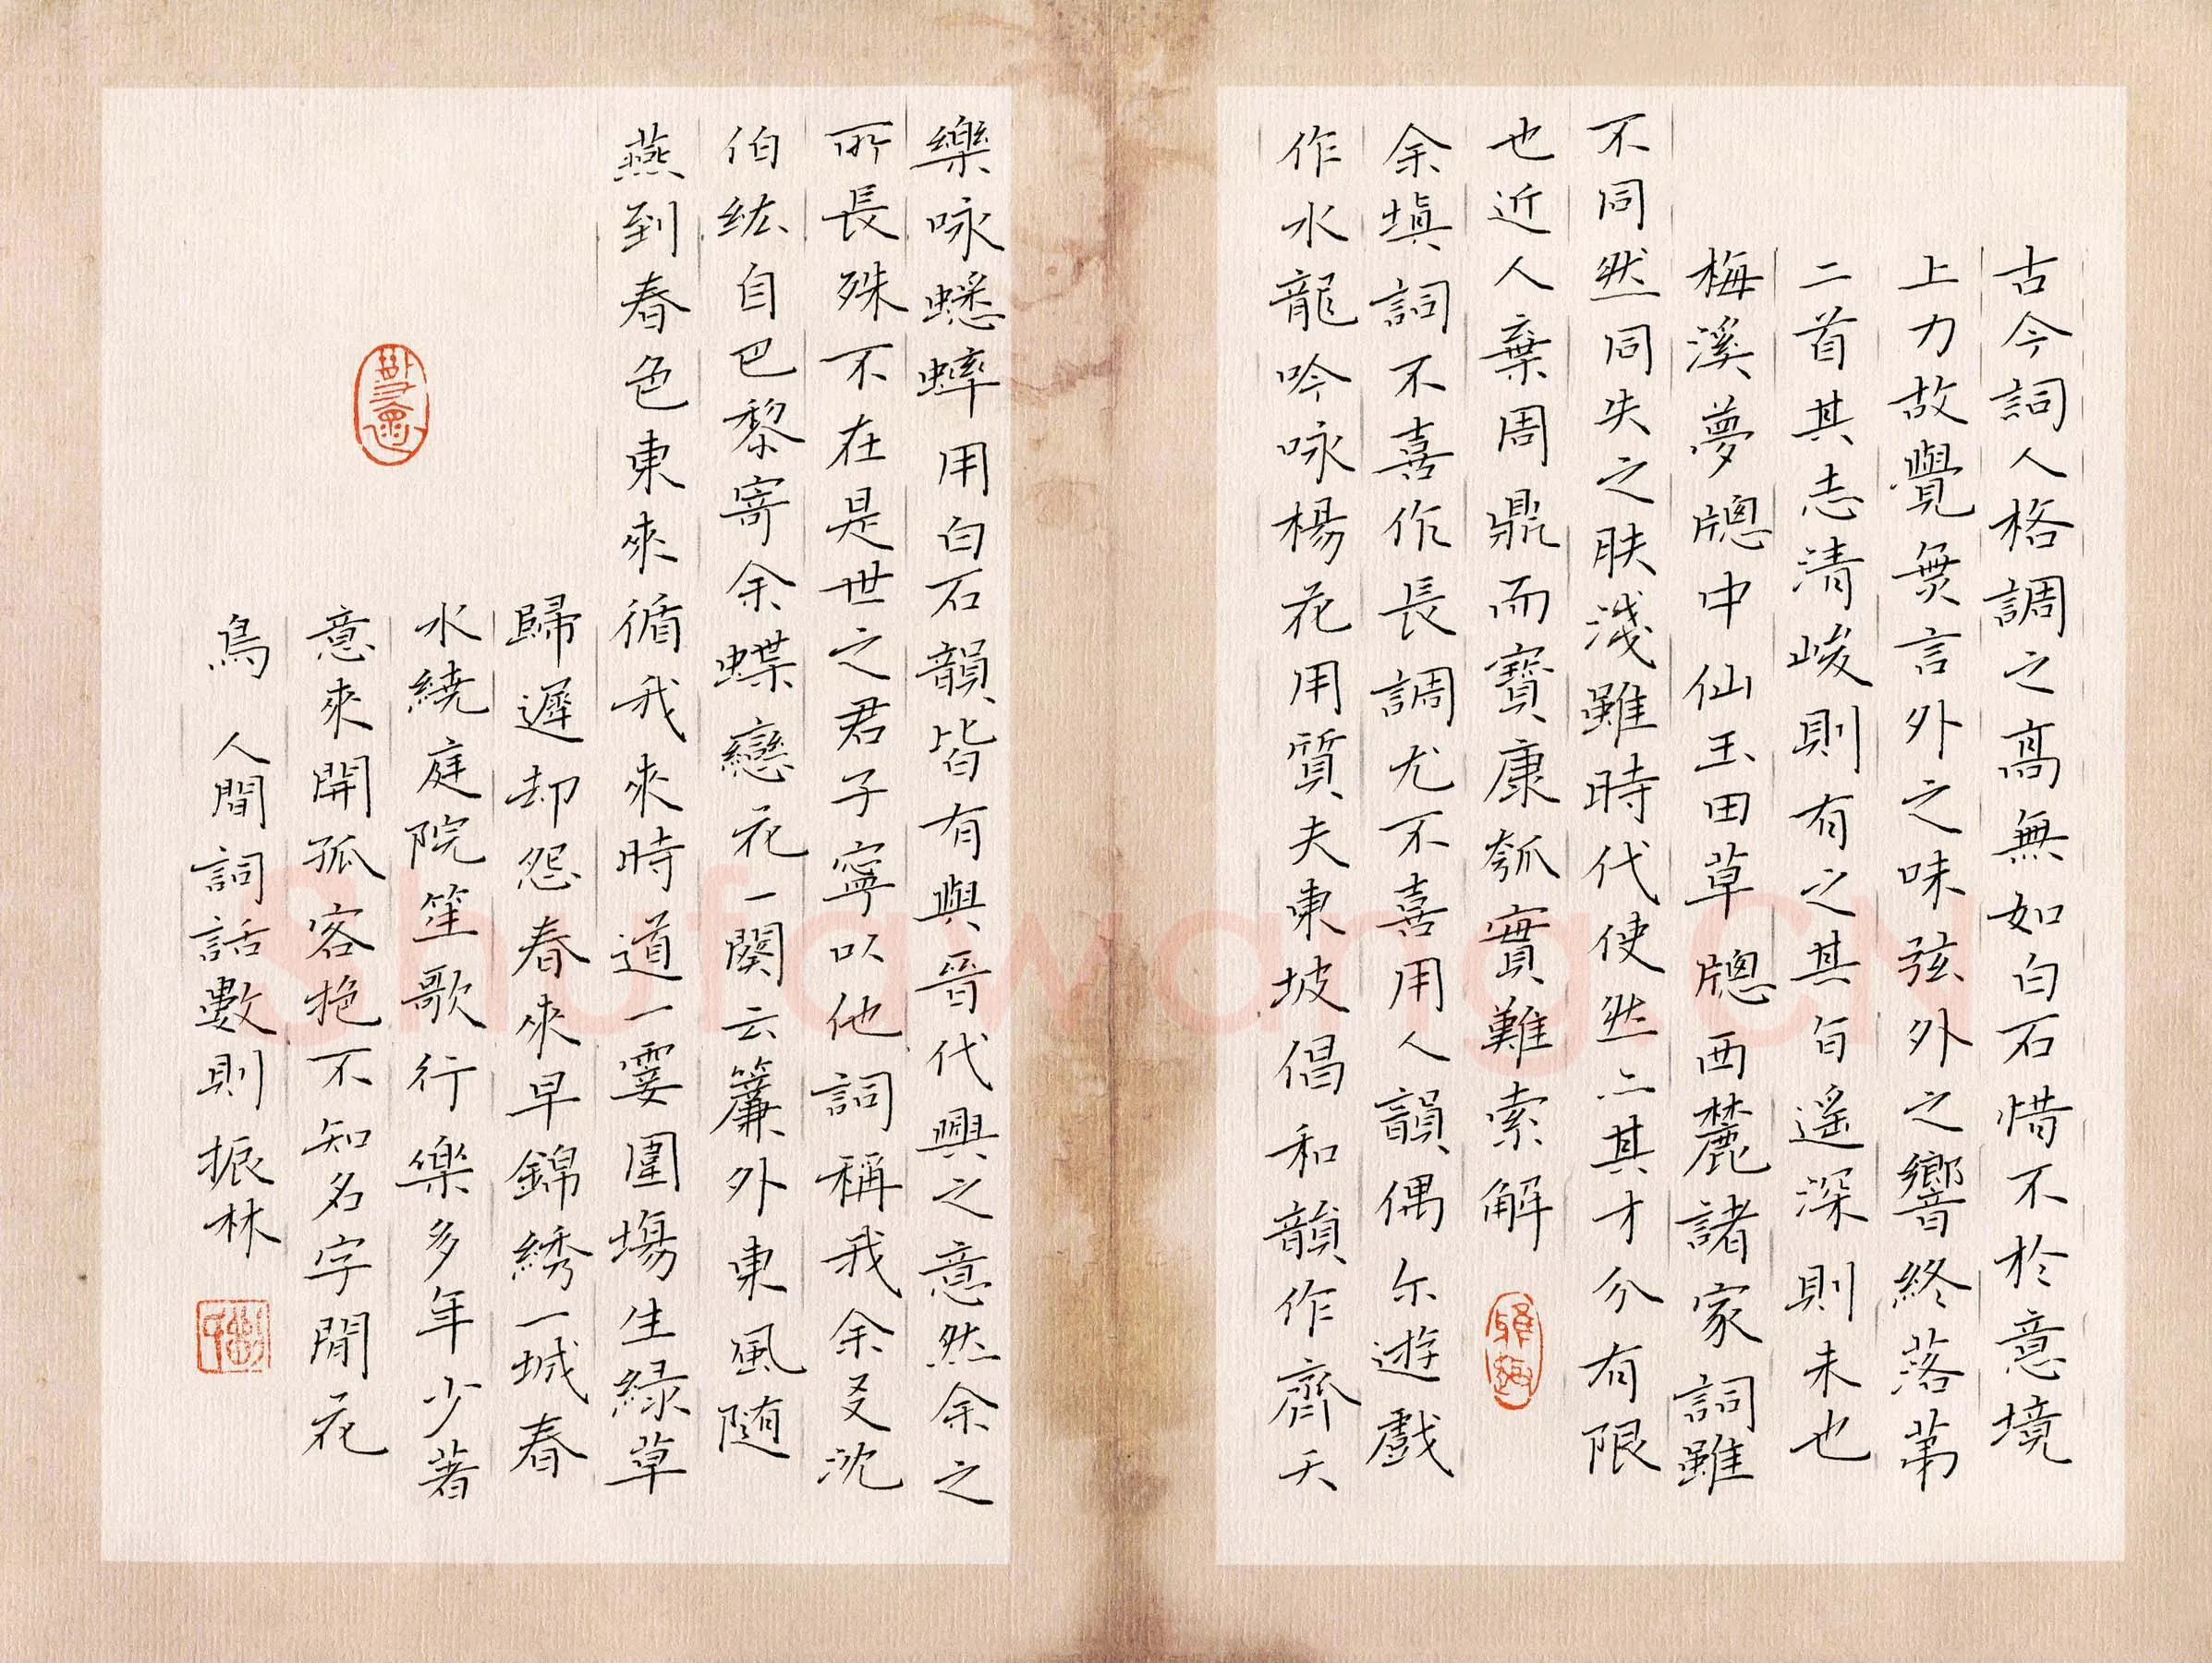 古今詞人格調之高無如白石惜不於意境
上力故覺無言外之味弦外之響終落第
二首其志清峻則有之其旨遙深則未也
梅溪夢牕中仙玉田草牕西麓諸家詞雖
不同然同失之肤淺雖時代使然亦其才分有限
也近人棄周鼎而寶康瓠實難索解
余填詞不喜作長調尤不喜用人韻偶尔遊戲
作水龍吟咏楊花用質夫東坡倡和韻作齊天
樂咏蟋蟀用白石韻皆有與晉代興之意然余之
所長殊不在是世之君子寧以他詞稱我余友沈
伯紘自巴黎寄余蝶戀花一闋云簾外東風隨
燕到春色東來循我來時道一霎圍場生緑草
歸遲却怨春來早錦綉一城春
水繞庭院笙歌行樂多年少著
意來開孤客抱不知名字閒花
鳥 人間詞話數則振林
Shufawang.CN